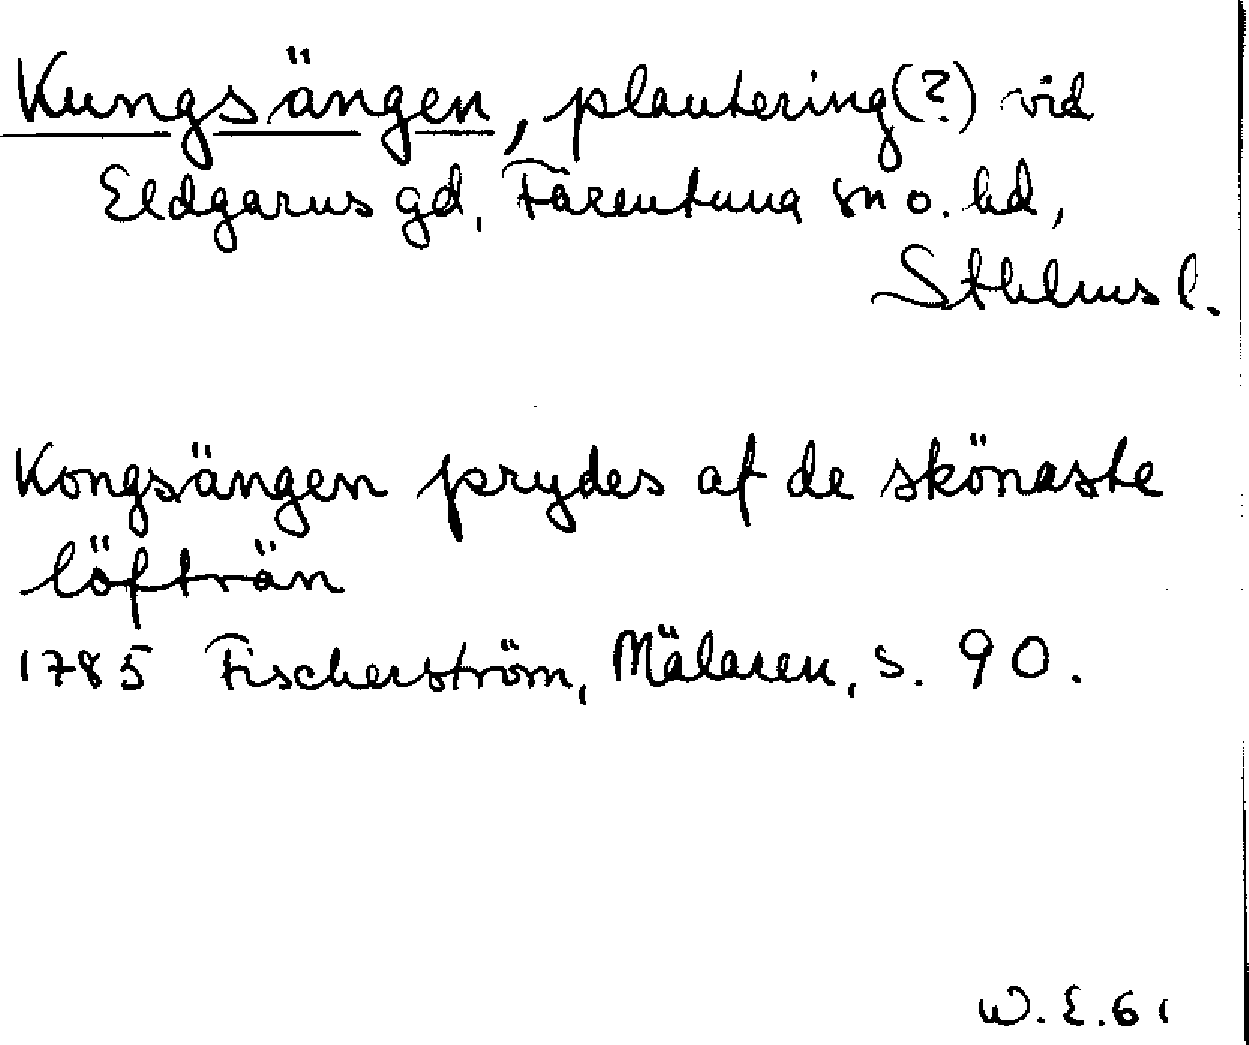 Kungsängen, plantering(?) vid
Eldgarns gd, Färentuna sn o. hd,
Sthlms l.
Kongsängen prydes af de skönaste
löfträn
1785 Fischerström, Mälaren, s. 90.
W. E. 61